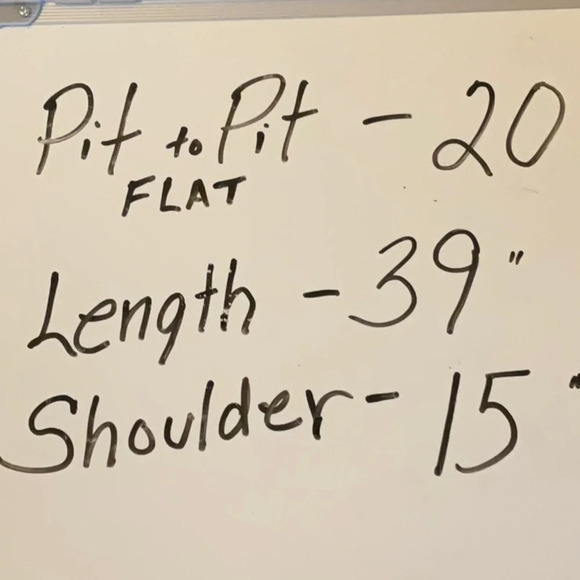 Pit to Pit - 20
FLAT
Length - 39"
Shoulder - 15"